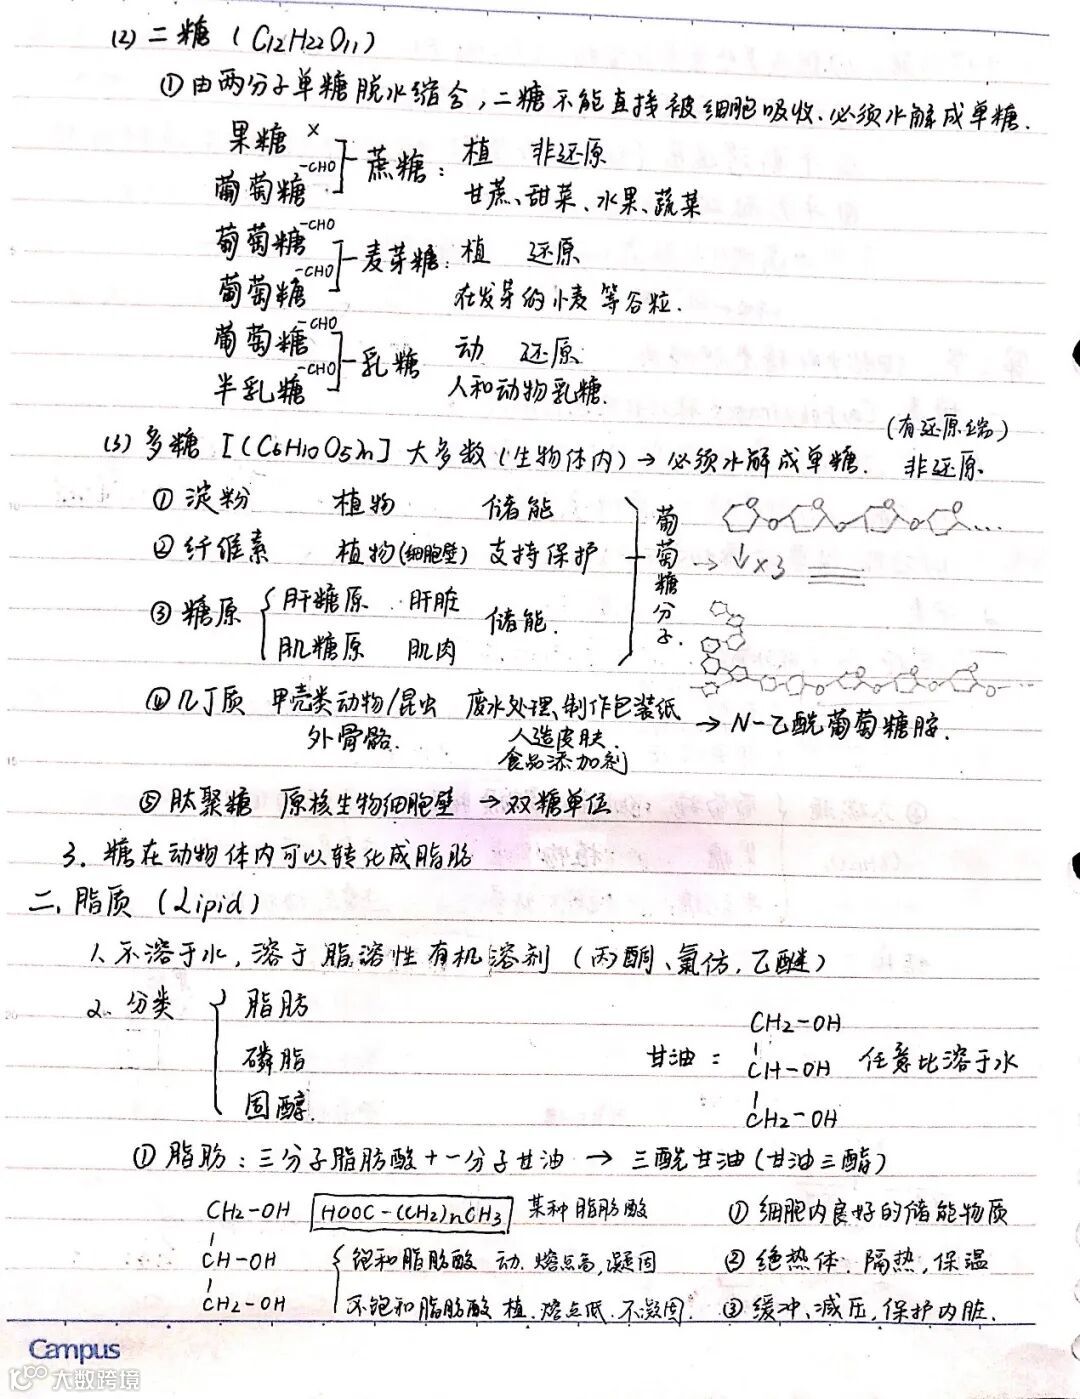 (2) 二糖 (C12H22O11)
① 由两分子单糖脱水缩合,二糖不能直接被细胞吸收、必须水解成单糖.
果糖 ×
葡萄糖 -CHO
蔗糖: 植 非还原
甘蔗、甜菜、水果、蔬菜
葡萄糖 -CHO
葡萄糖 -CHO
麦芽糖: 植 还原
在发芽的小麦等谷粒.
葡萄糖 -CHO
半乳糖 -CHO
乳糖 动 还原
人和动物乳糖.
(3) 多糖 [(C6H10O5)n] 大多数(生物体内) → 必须水解成单糖. (有还原端) 非还原
① 淀粉 植物 储能
② 纤维素 植物(细胞壁) 支持保护
③ 糖原 { 肝糖原 肝脏 储能.
肌糖原 肌肉
葡萄糖分子.
→ ↓×3
④ 几丁质 甲壳类动物/昆虫 废水处理、制作包装纸 → N-乙酰葡萄糖胺.
外骨骼. 人造皮肤.
食品添加剂
⑤ 肽聚糖 原核生物细胞壁 → 双糖单位
3. 糖在动物体内可以转化成脂肪
二. 脂质 (Lipid)
1. 不溶于水, 溶于脂溶性有机溶剂 (丙酮、氯仿, 乙醚)
2. 分类 { 脂肪
磷脂
固醇.
甘油 = CH2-OH
CH-OH 任意比溶于水
CH2-OH
① 脂肪: 三分子脂肪酸 + 一分子甘油 → 三酰甘油 (甘油三酯)
CH2-OH HOOC-(CH2)nCH3 某种脂肪酸 ① 细胞内良好的储能物质
CH-OH { 饱和脂肪酸 动. 熔点高, 凝固 ② 绝热体. 隔热, 保温
CH2-OH 不饱和脂肪酸 植. 熔点低. 不凝固. ③ 缓冲、减压, 保护内脏.
Campus
大数跨境